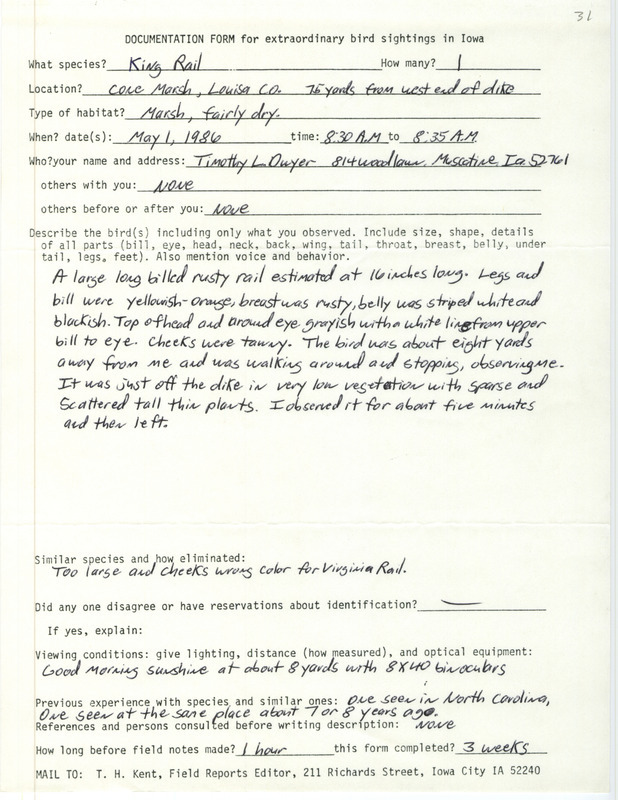 31
DOCUMENTATION FORM for extraordinary bird sightings in Iowa
What species? King Rail How many? 1
Location? Cone Marsh, Louisa Co. 75 yards from west end of dike
Type of habitat? Marsh, fairly dry.
When? date(s): May 1, 1986 time: 8:30 A.M to 8:35 A.M.
Who?your name and address: Timothy L. Dwyer 814 Woodlawn. Muscatine, Ia. 52761
others with you: None
others before or after you: None
Describe the bird(s) including only what you observed. Include size, shape, details
of all parts (bill, eye, head, neck, back, wing, tail, throat, breast, belly, under
tail, legs, feet). Also mention voice and behavior.
A large long billed rusty rail estimated at 16 inches long. Legs and
bill were yellowish-orange, breast was rusty, belly was striped white and
blackish. Top of head and around eye grayish with a white line from upper
bill to eye. Cheeks were tawny. The bird was about eight yards
away from me and was walking around and stopping, observing me.
It was just off the dike in very low vegetation with sparse and
scattered tall thin plants. I observed it for about five minutes
and then left.
Similar species and how eliminated:
Too large and cheeks wrong color for Virginia Rail.
Did any one disagree or have reservations about identification? —
If yes, explain:
Viewing conditions: give lighting, distance (how measured), and optical equipment:
Good morning sunshine at about 8 yards with 8X40 binoculars
Previous experience with species and similar ones: One seen in North Carolina,
One seen at the same place about 7 or 8 years ago.
References and persons consulted before writing description: None
How long before field notes made? 1 hour this form completed? 3 weeks
MAIL TO: T. H. Kent, Field Reports Editor, 211 Richards Street, Iowa City IA 52240